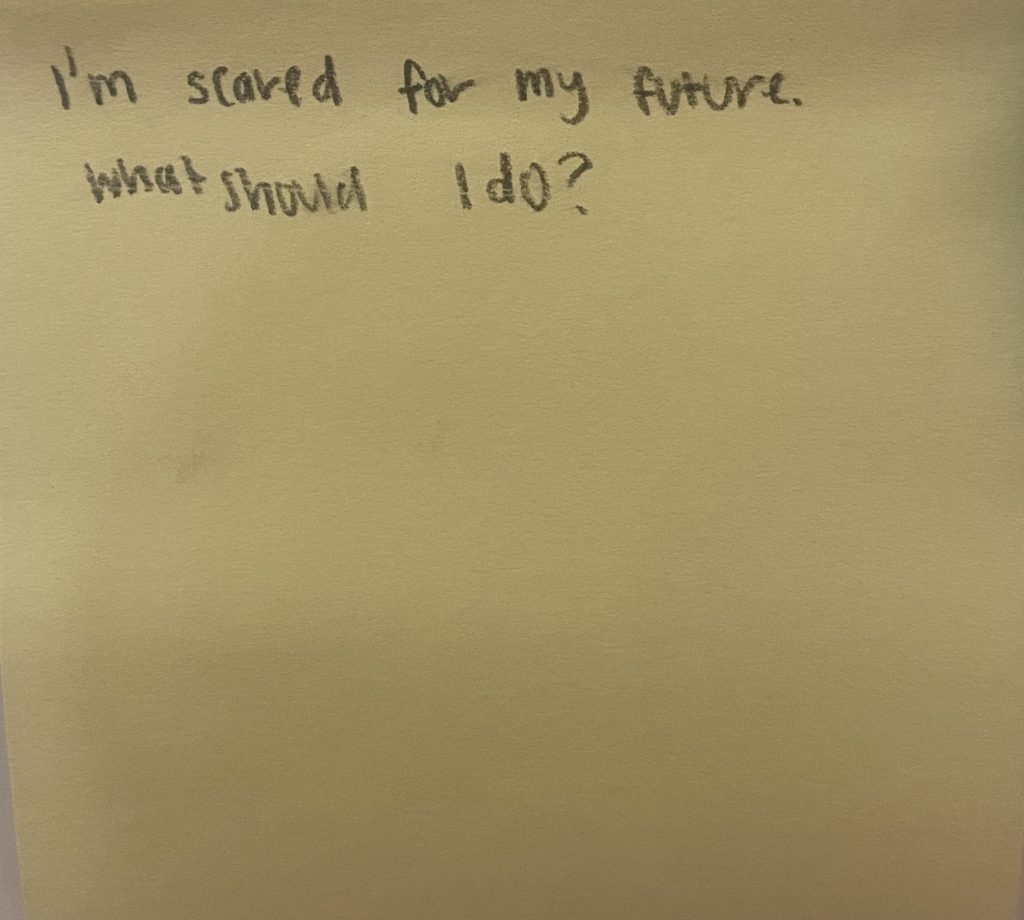 I'm scared for my future.
What should I do?